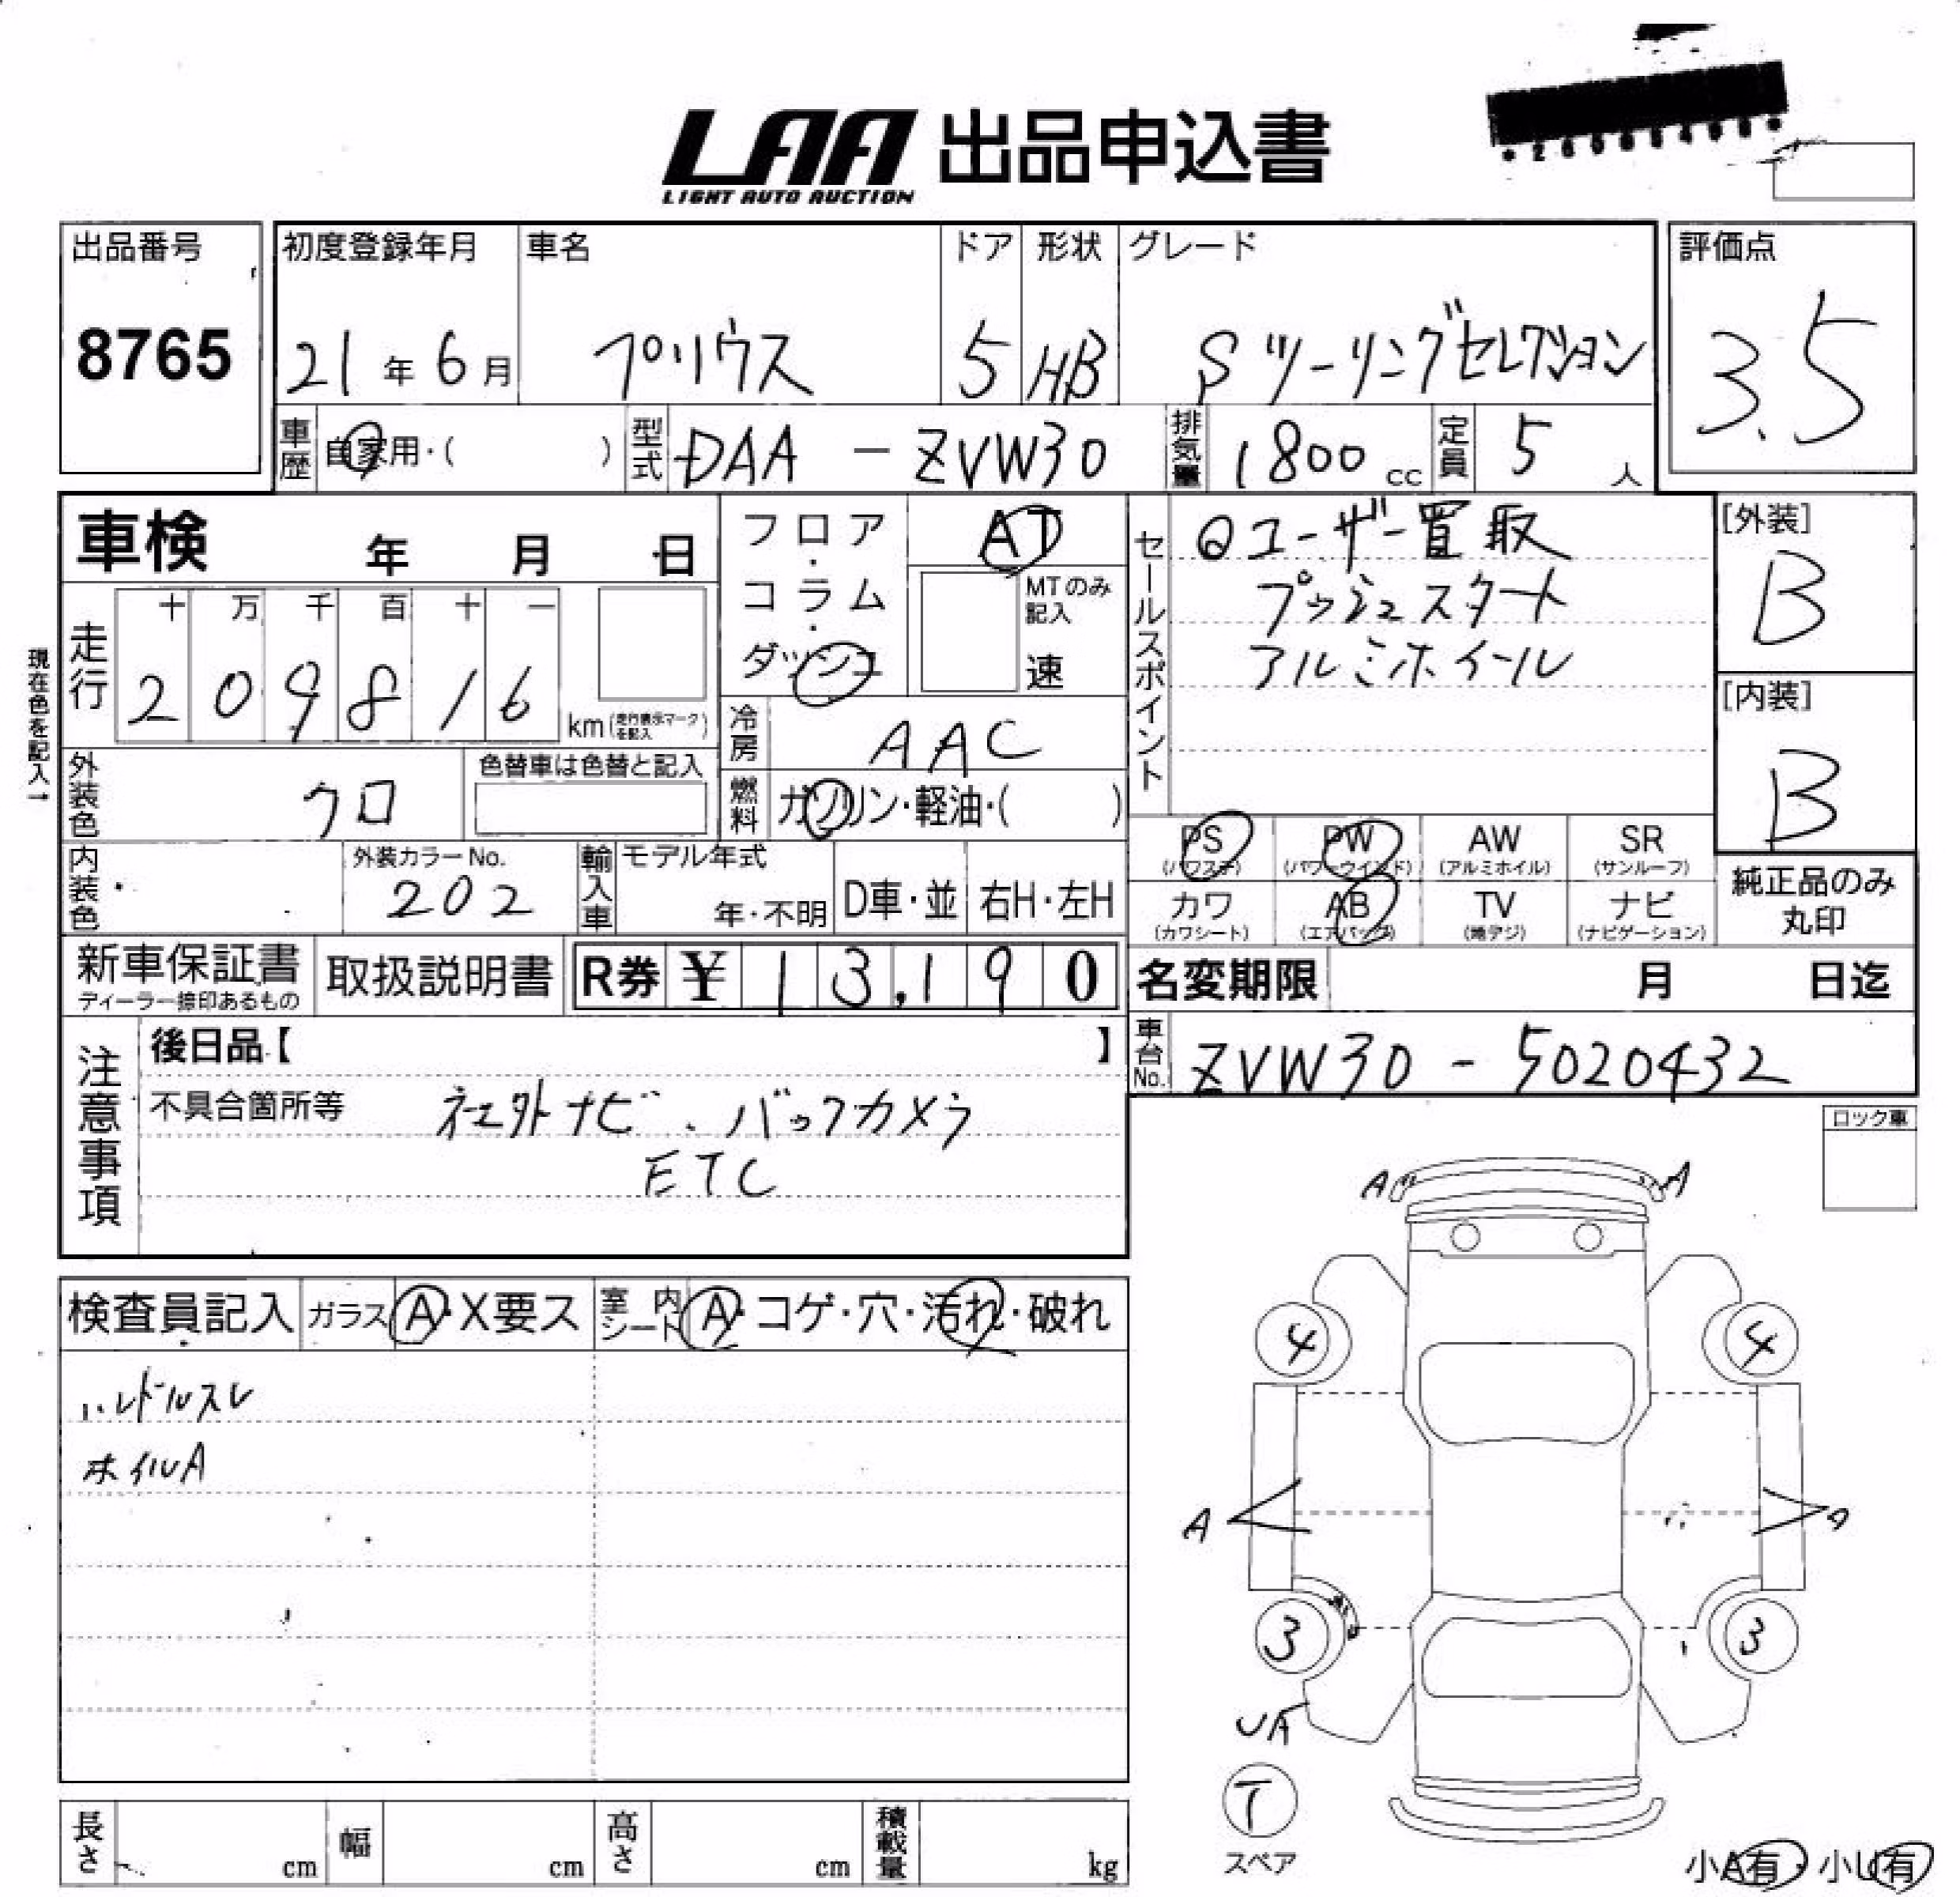 LAA 出品申込書
LIGHT AUTO AUCTION
出品番号 初度登録年月 車名 ドア 形状 グレード 評価点
8765 21年6月 プリウス 5 HB Sツーリングセレクション 3.5
車歴 自家用・( ) 型式 DAA - ZVW30 排気量 1800cc 定員 5人
車検 年 月 日
フロア・コラム・ダッシュ
AT
MTのみ記入
速
セールスポイント
ユーザー買取
プッシュスタート
アルミホイール
[外装]
B
[内装]
B
現在色を記入→
走行 十 万 千 百 十 一
2 0 9 8 1 6 km (走行表示マークを記入)
冷房 AAC
燃料 ガソリン・軽油・( )
外装色 クロ 色替車は色替と記入
内装色 外装カラーNo. 202
輸入車 モデル年式 年・不明 D車・並 右H・左H
PS (パワステ) PW (パワーウインド) AW (アルミホイル) SR (サンルーフ)
カワ (カワシート) AB (エアバッグ) TV (地デジ) ナビ (ナビゲーション)
純正品のみ丸印
新車保証書 ディーラー捺印あるもの 取扱説明書 R券 ¥ 13,190
名変期限 月 日迄
車台No. ZVW30 - 5020432
注意事項
後日品【 】
不具合箇所等 社外ナビ、バックカメラ
ETC
ロック車
検査員記入 ガラス A・X要ス 室内シート A・コゲ・穴・汚れ・破れ
ハンドルスレ
ホイルA
A A
4 4
A A
3 3
UA
T
スペア
小A有・小U有
長さ cm 幅 cm 高さ cm 積載量 kg